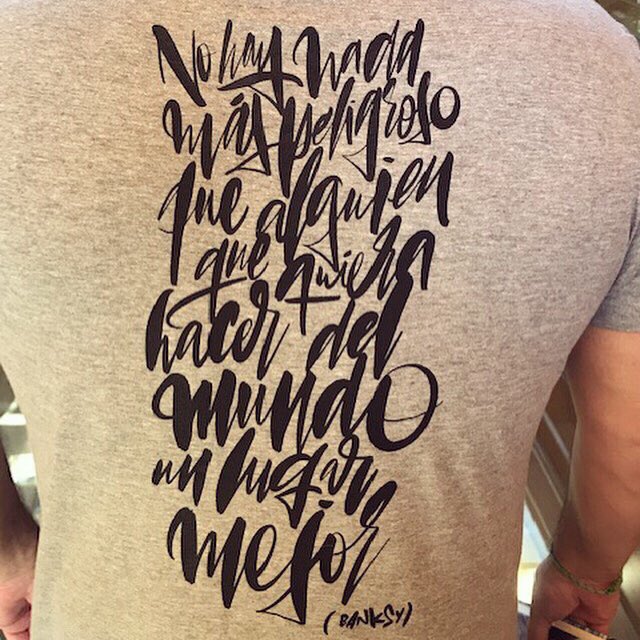 No hay nada
más peligroso
que alguien
que quiera
hacer del
mundo
un lugar
mejor
(BANKSY)